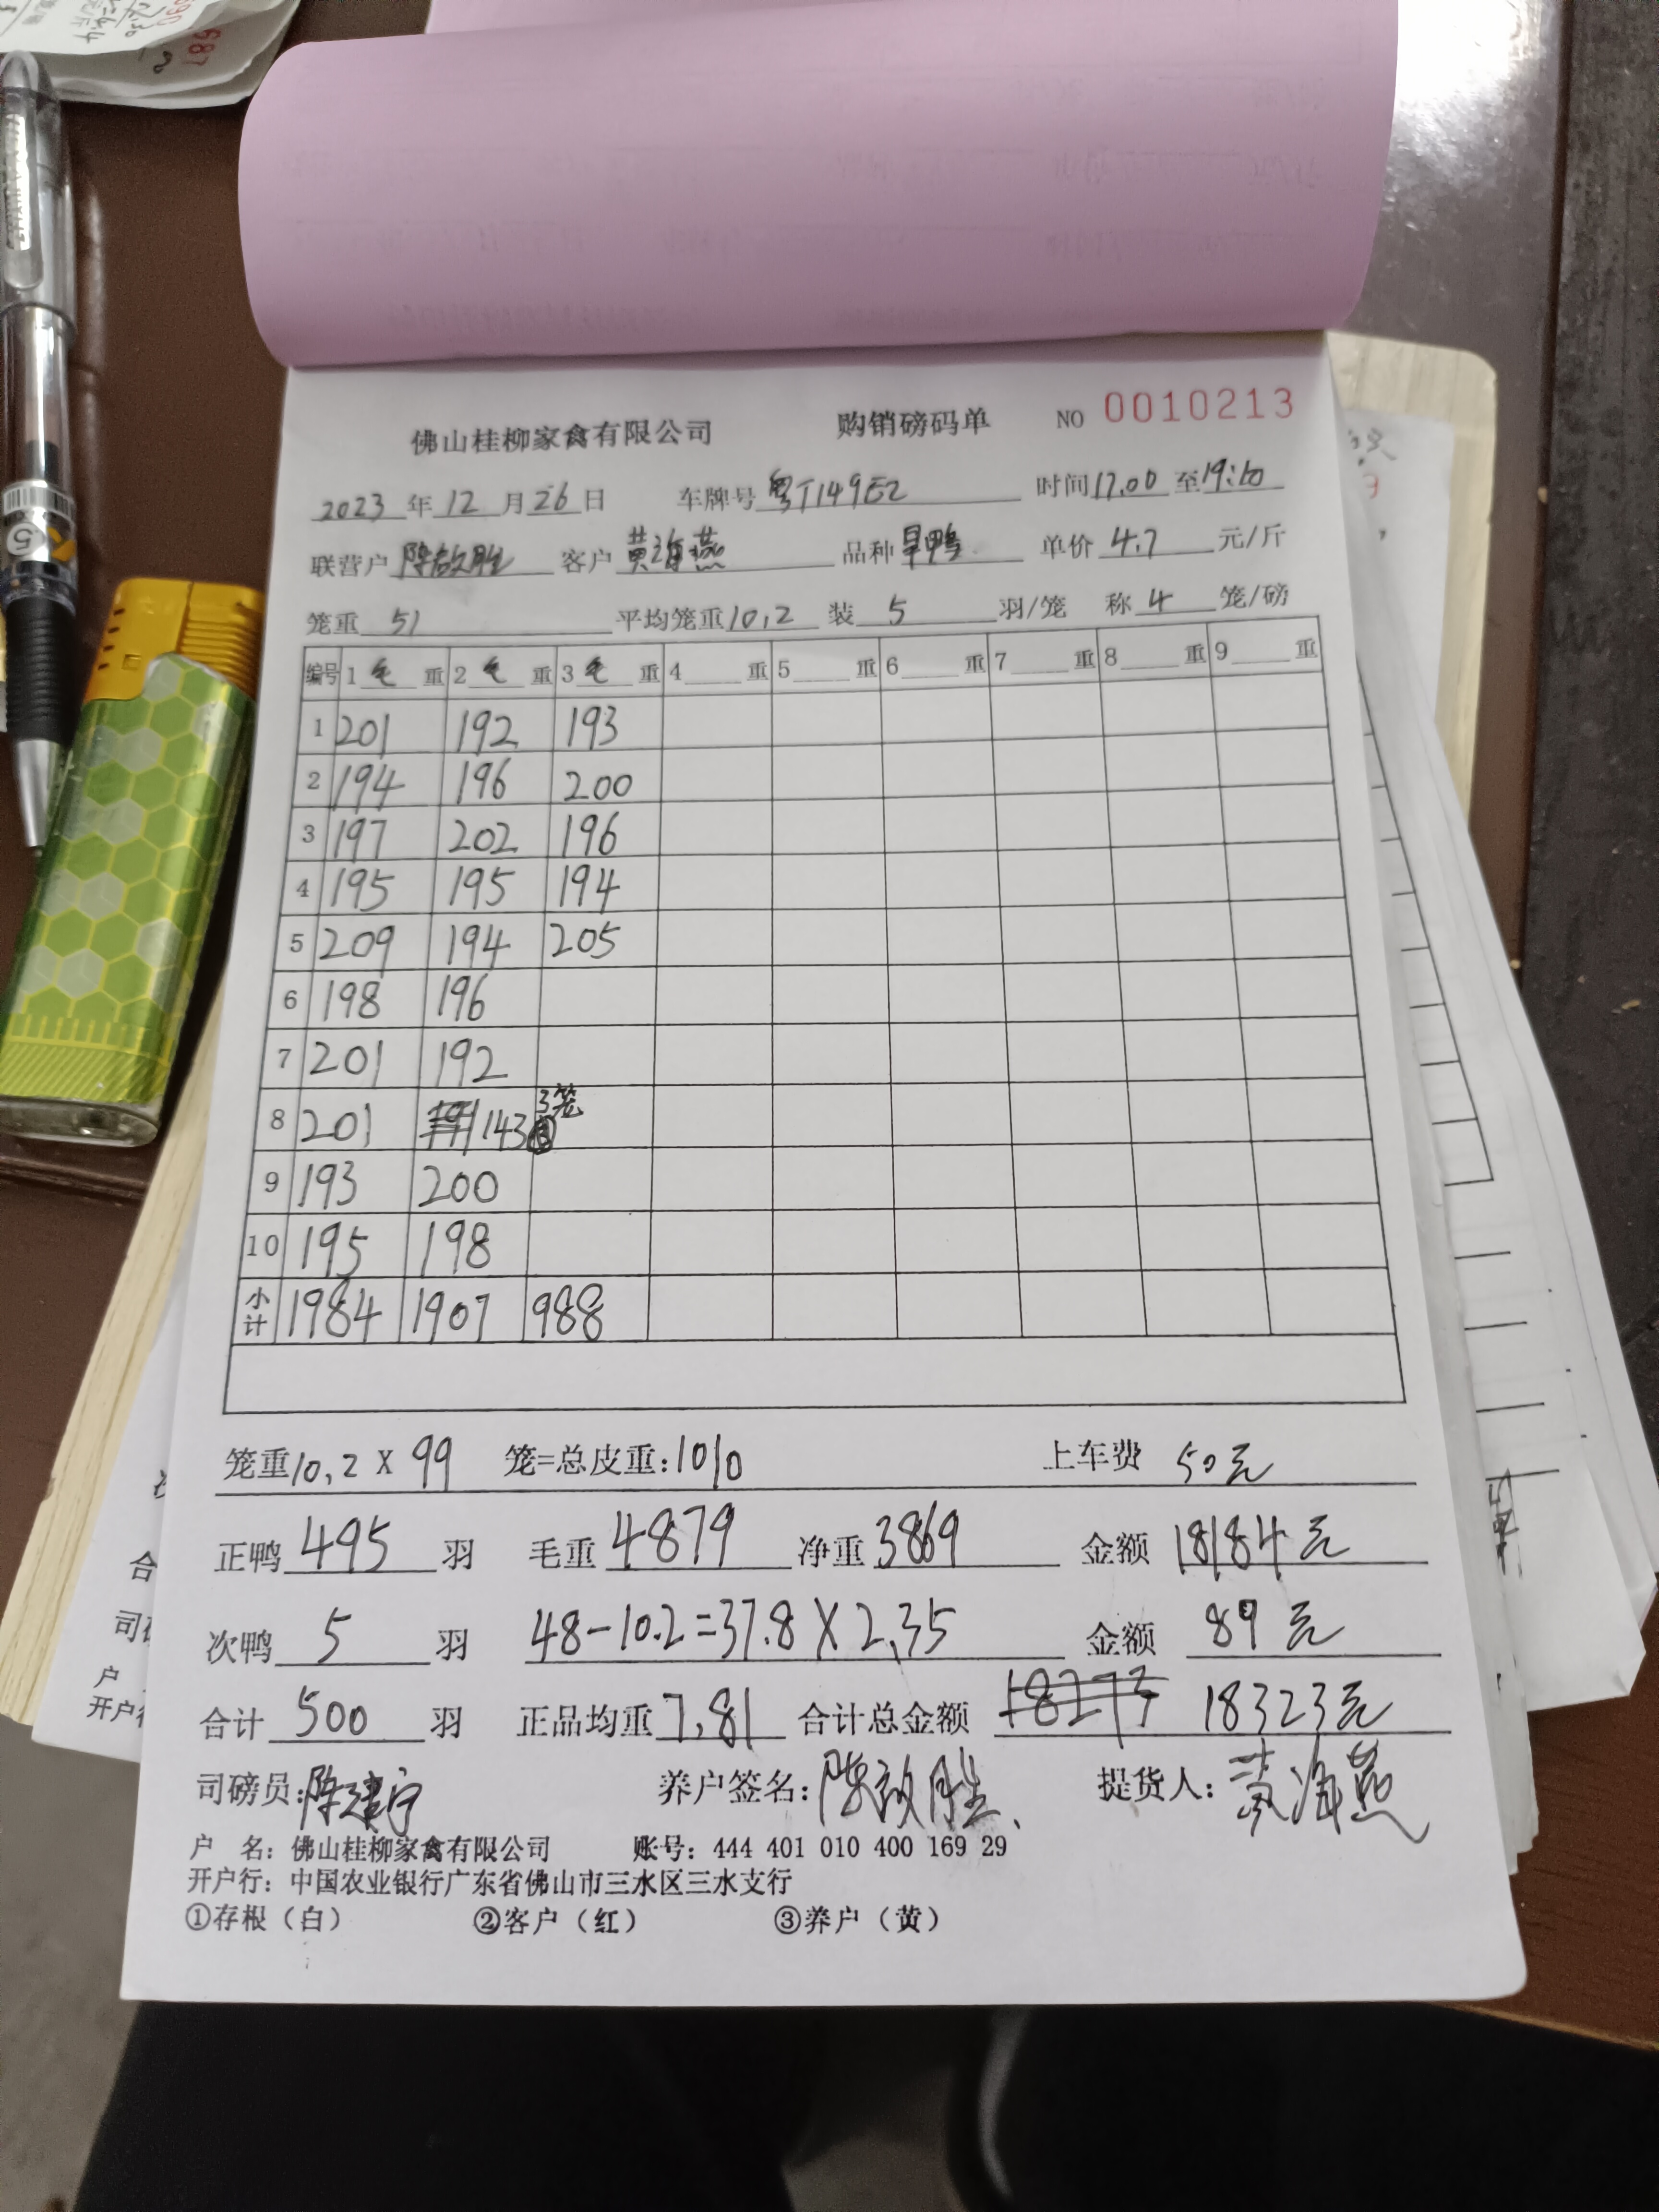 佛山桂柳家禽有限公司 购销磅码单 NO 0010213
2023 年 12 月 26 日 车牌号 粤T149E2 时间 17.00 至 19:10
联营户 陈敬胜 客户 黄海燕 品种 旱鸭 单价 4.7 元/斤
笼重 51 平均笼重 10.2 装 5 羽/笼 称 4 笼/磅
编号 1 毛 重 2 毛 重 3 毛 重 4 重 5 重 6 重 7 重 8 重 9 重
1 201 192 193
2 194 196 200
3 197 202 196
4 195 195 194
5 209 194 205
6 198 196
7 201 192
8 201 143 3笼
9 193 200
10 195 198
小计 1984 1907 988
笼重 10.2 X 99 笼=总皮重: 1010 上车费 50元
正鸭 495 羽 毛重 4879 净重 3869 金额 18184元
次鸭 5 羽 48-10.2=37.8X2.35 金额 89元
合计 500 羽 正品均重 7.81 合计总金额 18273 18323元
司磅员: 陈建宁 养户签名: 陈敬胜 提货人: 黄海燕
户 名: 佛山桂柳家禽有限公司 账号: 444 401 010 400 169 29
开户行: 中国农业银行广东省佛山市三水区三水支行
①存根（白） ②客户（红） ③养户（黄）